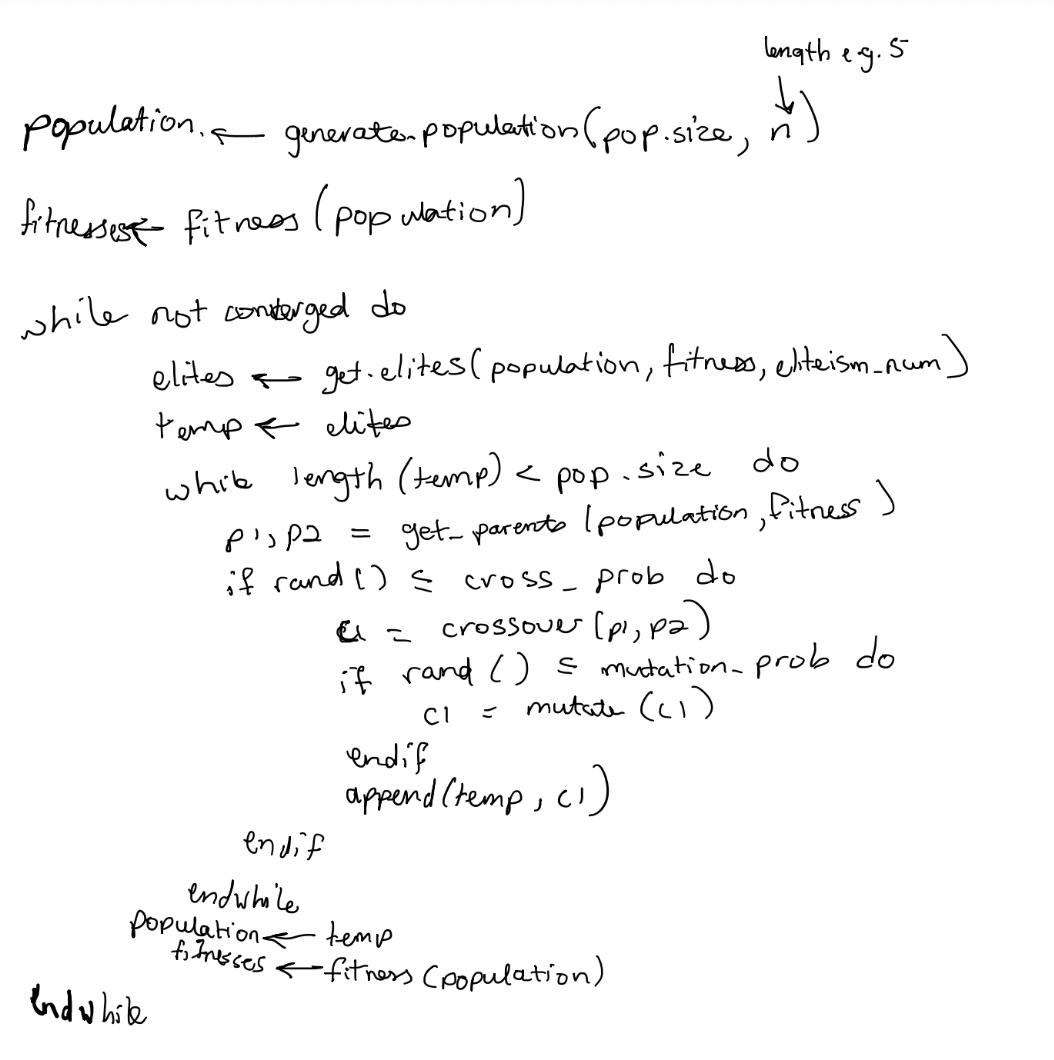 length e.g. 5
population. ← generate-population(pop.size, n)
fitnesses ← fitness (population)
while not converged do
elites ← get.elites(population, fitness, eliteism_num)
temp ← elites
while length (temp) < pop.size do
p1, p2 = get_parents (population, fitness)
if rand() ≤ cross_prob do
c1 = crossover (p1, p2)
if rand () ≤ mutation_prob do
c1 = mutate (c1)
endif
append(temp, c1)
endif
endwhile
population ← temp
fitnesses ← fitness (population)
endwhile